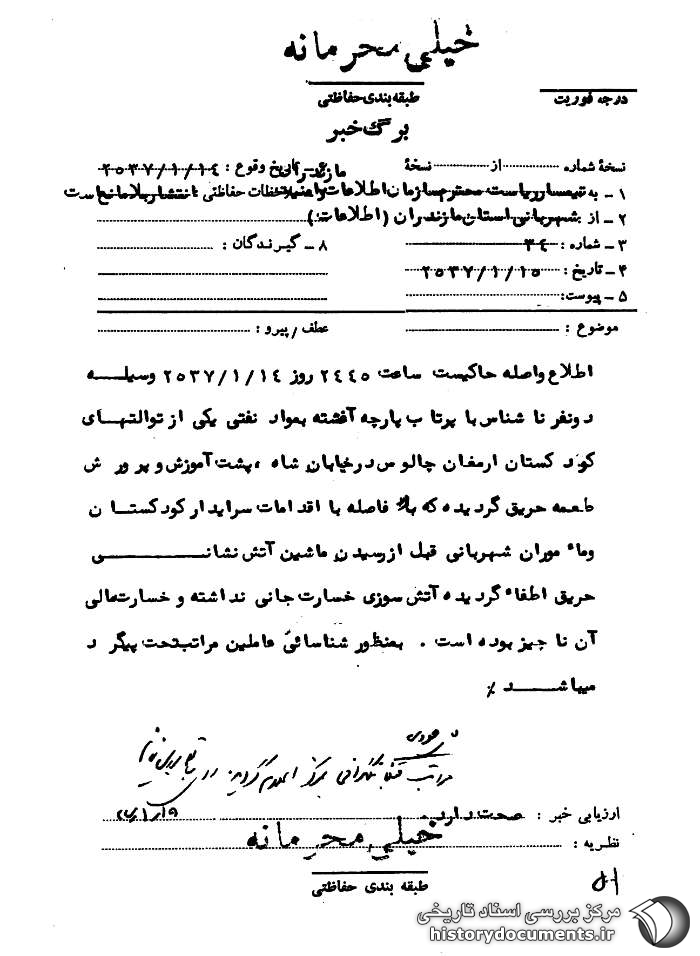 خیلی محرمانه
طبقه بندی حفاظتی
درجه فوریت
برگ خبر
نسخهٔ شماره از نسخهٔ
تاریخ وقوع : ۲۵۳۷/۱/۱۴
۱ ـ به تیمسار ریاست محترم سازمان اطلاعات و امنیت مازندران
ملاحظات حفاظتی : انتشار بلامانع است
۲ ـ از شهربانی استان مازندران (اطلاعات)
۳ ـ شماره : ۳۴
۸ ـ گیرندگان :
۴ ـ تاریخ : ۲۵۳۷/۱/۱۵
۵ ـ پیوست:
موضوع :
عطف / پیرو :
اطلاع واصله حاکیست ساعت ۲۴۴۵ روز ۲۵۳۷/۱/۱۴ وسیلــه
دونفر ناشناس با پرتاب پارچه آغشته بمواد نفتی یکی از توالتهـای
کودکستان ارمغان چالوس درخیابان شاه ، پشت آموزش و پرورش
طعمه حریق گردیده که بلا فاصله با اقدامات سرایدار کودکستـان
وماموران شهربانی قبل از رسیدن ماشین آتش نشانـــی
حریق اطفاء گردیده آتش سوزی خسارت جانی نداشته و خسارت مالی
آن ناچیز بوده است . بمنظور شناسائی عاملین مراتب تحت پیگرد
میباشـــد ٪
مراتب قبلا تلگرافی بمرکز اعلام گردیده
ارزیابی خبر : صحت دارد
نظریه :
خیلی محرمانه
طبقه بندی حفاظتی
مرکز بررسی اسناد تاریخی
historydocuments.ir